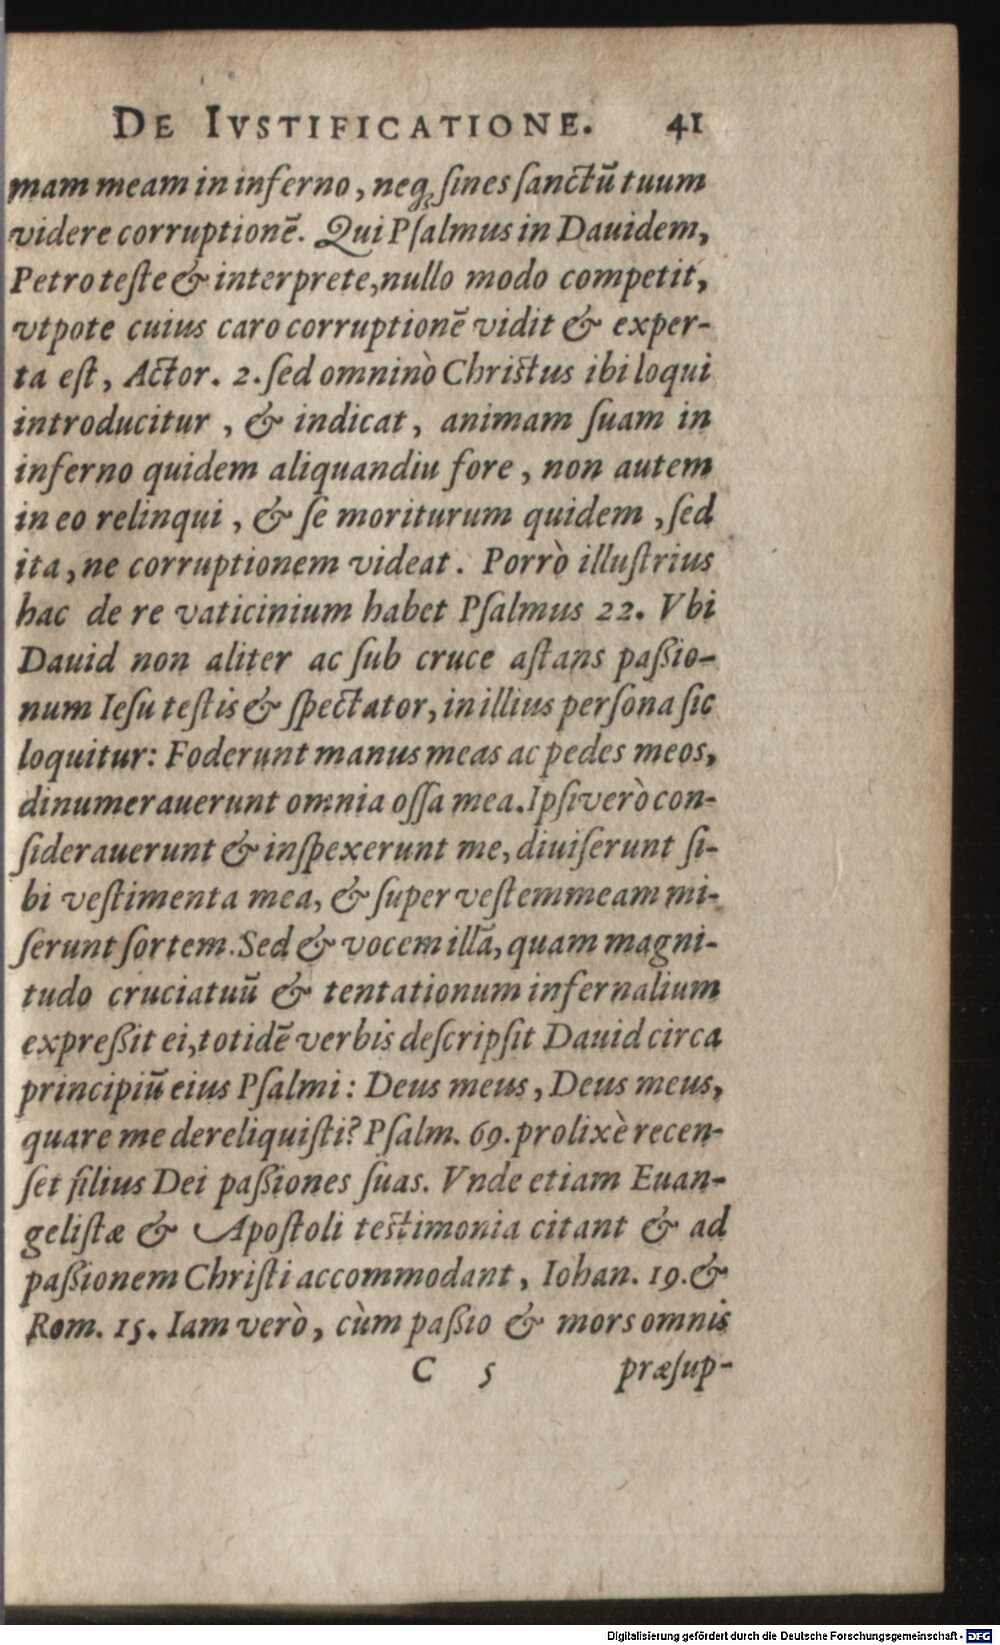 DE IVSTIFICATIONE. 41
mam meam in inferno, neq; ſines ſanctū tuum
videre corruptionē. Qui Pſalmus in Dauidem,
Petro teſte & interprete, nullo modo competit,
vtpote cuius caro corruptionē vidit & exper-
ta eſt, Actor. 2. ſed omninò Chriſtus ibi loqui
introducitur, & indicat, animam ſuam in
inferno quidem aliquandiu fore, non autem
in eo relinqui, & ſe moriturum quidem, ſed
ita, ne corruptionem videat. Porrò illuſtrius
hac de re vaticinium habet Pſalmus 22. Vbi
Dauid non aliter ac ſub cruce aſtans paßio-
num Ieſu teſtis & ſpectator, in illius perſona ſic
loquitur: Foderunt manus meas ac pedes meos,
dinumerauerunt omnia oſſa mea. Ipſi verò con-
ſiderauerunt & inſpexerunt me, diuiſerunt ſi-
bi veſtimenta mea, & ſuper veſtem meam mi-
ſerunt ſortem. Sed & vocem illā, quam magni-
tudo cruciatuū & tentationum infernalium
expreßit ei, totidē verbis deſcripſit Dauid circa
principiū eius Pſalmi: Deus meus, Deus meus,
quare me dereliquiſti? Pſalm. 69. prolixè recen-
ſet filius Dei paßiones ſuas. Vnde etiam Euan-
geliſtæ & Apoſtoli teſtimonia citant & ad
paßionem Chriſti accommodant, Iohan. 19. &
Rom. 15. Iam verò, cùm paßio & mors omnis
C 5 præſup-
Digitalisierung gefördert durch die Deutsche Forschungsgemeinschaft - DFG